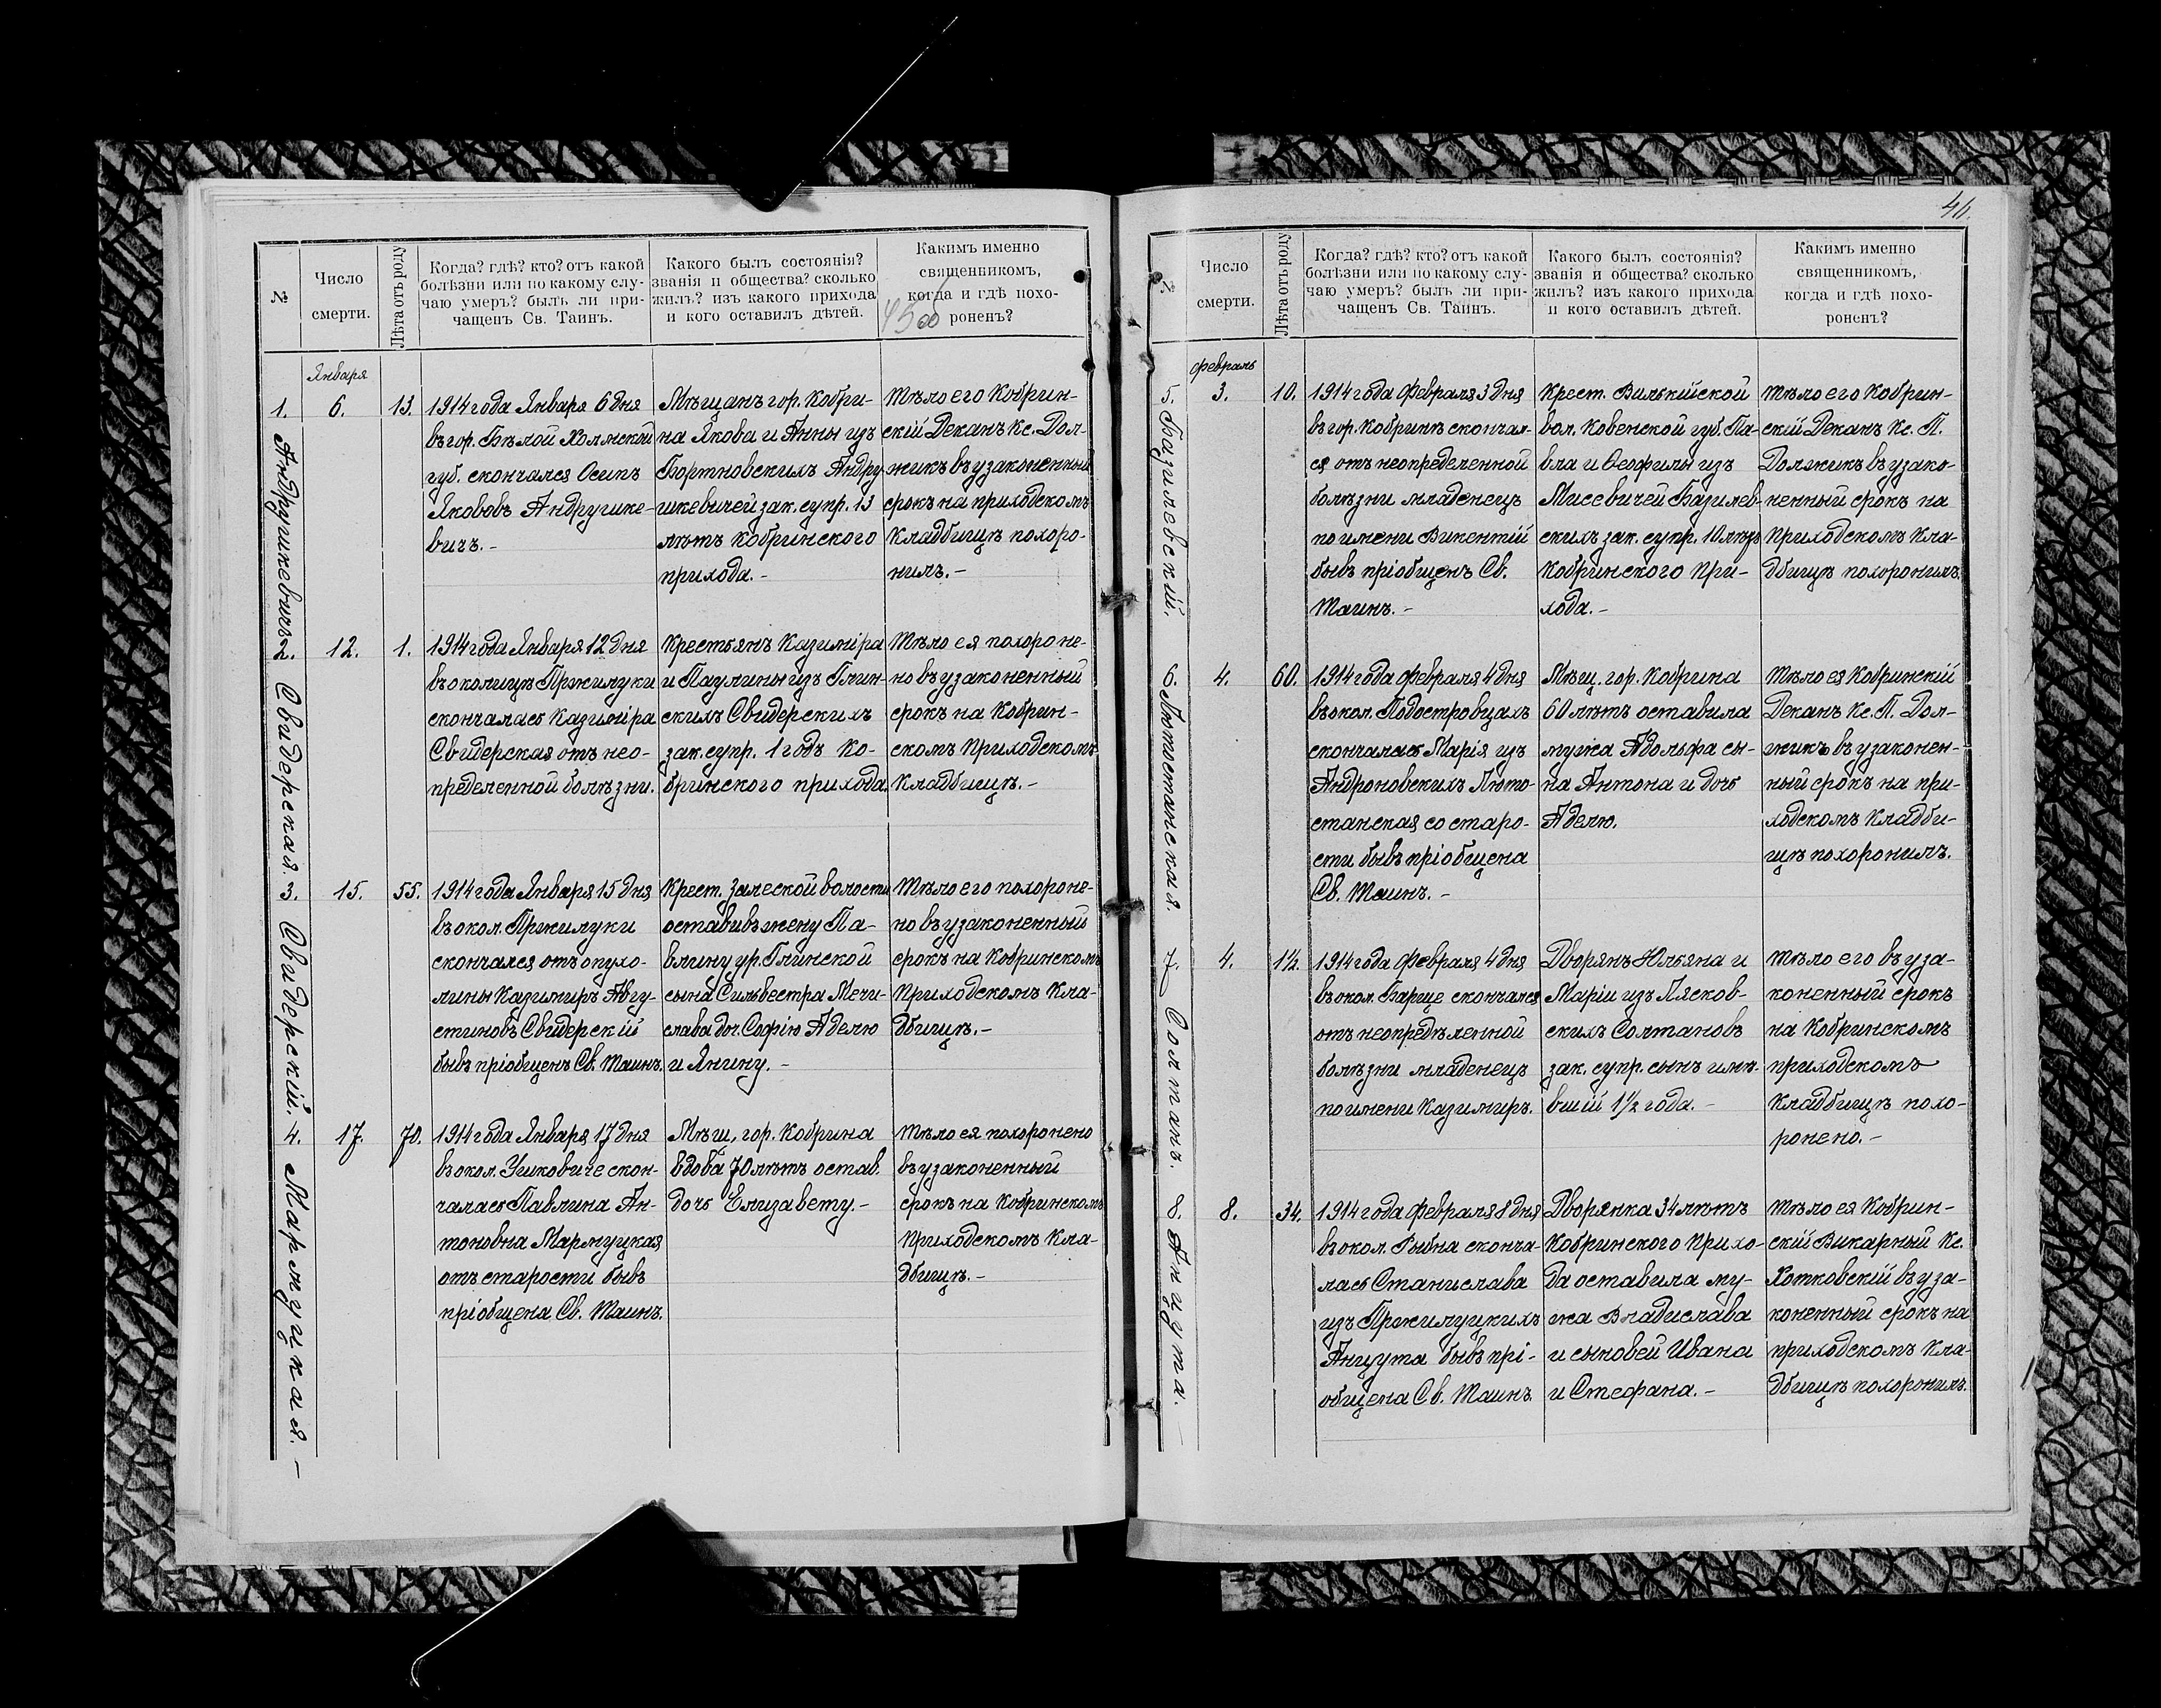 46.
№
Число
смерти.
Лѣта отъ роду
Когда? гдѣ? кто? отъ какой
болѣзни или по какому слу-
чаю умеръ? былъ ли при-
чащенъ Св. Таинъ.
Какого былъ состоянія?
званія и общества? сколько
жилъ? изъ какого прихода
и кого оставилъ дѣтей.
Какимъ именно
священникомъ,
когда и гдѣ похо-
роненъ?
Января
1.
Андрушкевичъ
6.
13.
1914 года Января 6 дня
въ гор. Бѣлой Холмской
губ. скончался Осипъ
Якововъ Андрушке-
вичъ.-
Мѣщанъ гор. Кобри-
на Якова и Анны изъ
Бортновскихъ Андру
шкевичей зак. супр. 13
лѣтъ Кобринского
прихода.-
Тѣло его Кобрин-
скій Деканъ Кс. Дол-
жикъ въ узаконенный
срокъ на приходскомъ
Кладбищѣ похоро-
нилъ.-
2.
Свидерская.
12.
1.
1914 года Января 12 дня
въ околицѣ Пржилуки
скончалась Казиміра
Свидерская отъ нео-
пределенной болѣзни.
Крестьянъ Казиміра
и Паулины изъ Глин-
скихъ Свидерскихъ
зак. супр. 1 годъ Ко-
бринского прихода.
Тѣло ея похороне-
но въ узаконенный
срокъ на Кобрин-
скомъ Приходскомъ
Кладбищѣ.-
3.
Свидерскій.
15.
55.
1914 года Января 15 дня
въ окол. Пржилуки
скончался отъ опухо-
лины Казимиръ Авгу-
стиновъ Свидерскій
бывъ пріобщенъ Св. Таинъ.
Крест. Залеской волости
оставивъ жену Па-
влину ур. Глинской
сына Сильвестра Мечи-
слава доч. Софію Аделю
и Янину.-
Тѣло его похороне-
но въ узаконенный
срокъ на Кобринскомъ
Приходскомъ Кла-
дбищѣ.-
4.
Мармуцкая.-
17.
70.
1914 года Января 17 дня
въ окол. Ушковиче скон-
чалась Павлина Ан-
тоновна Мармуцкая
отъ старости бывъ
пріобщена Св. Таинъ.
Мѣщ. гор. Кобрина
вдова 70 лѣтъ остав.
дочь Елизавету.-
Тѣло ея похоронено
въ узаконенный
срокъ на Кобринскомъ
Приходскомъ Кла-
дбищѣ.-
№
Число
смерти.
Лѣта отъ роду
Когда? гдѣ? кто? отъ какой
болѣзни или по какому слу-
чаю умеръ? былъ ли при-
чащенъ Св. Таинъ.
Какого былъ состоянія?
званія и общества? сколько
жилъ? изъ какого прихода
и кого оставилъ дѣтей.
Какимъ именно
священникомъ,
когда и гдѣ похо-
роненъ?
Февраль
5.
Базилевскій.
3.
10.
1914 года Февраля 3 дня
въ гор. Кобринѣ скончал-
ся отъ неопределенной
болѣзни младенецъ
по имени Викентій
бывъ пріобщенъ Св.
Таинъ.-
Крест. Вилькійской
вол. Ковенской губ. Па-
вла и Ѳеофилы изъ
Мисевичей Базилев-
скихъ зак. супр. 10 лѣтъ
Кобринского При-
хода.-
Тѣло его Кобрин-
скій Деканъ Кс. П.
Должикъ въ узако-
ненный срокъ на
Приходскомъ Кла-
дбищѣ похоронилъ.
6.
Лютостанская.
4.
60.
1914 года Февраля 4 дня
въ окол. Подостровцахъ
скончалась Марія изъ
Андроновскихъ Люто-
станская со старо-
сти бывъ пріобщена
Св. Таинъ.-
Мѣщ. гор. Кобрина
60 лѣтъ оставила
мужа Адольфа сы-
на Антона и дочь
Аделю.
Тѣло ея Кобринскій
Деканъ Кс. П. Дол-
жикъ въ узаконен-
ный срокъ на при-
ходскомъ Кладби-
щѣ похоронилъ.
7.
Солтанъ.
4.
1½.
1914 года Февраля 4 дня
въ окол. Барще скончался
отъ неопредѣленной
болѣзни младенецъ
по имени Казимиръ.
Дворянъ Юльяна и
Маріи изъ Лясков-
скихъ Солтановъ
зак. супр. сынъ имѣ-
вшій 1½ года.-
Тѣло его въ уза-
коненный срокъ
на Кобринскомъ
приходскомъ
Кладбищѣ похо-
ронено.-
8.
Анцута.
8.
34.
1914 года Февраля 8 дня
въ окол. Рыбна сконча-
лась Станислава
изъ Пржилуцкихъ
Анцута бывъ прі-
общена Св. Таинъ.
Дворянка 34 лѣтъ
Кобринского Прихо-
да оставила му-
жа Владислава
и сыновей Ивана
и Стефана.-
Тѣло ея Кобрин-
скій Викарный Кс.
Хотковскій въ уза-
коненный срокъ на
приходскомъ Кла-
дбищѣ похоронилъ.